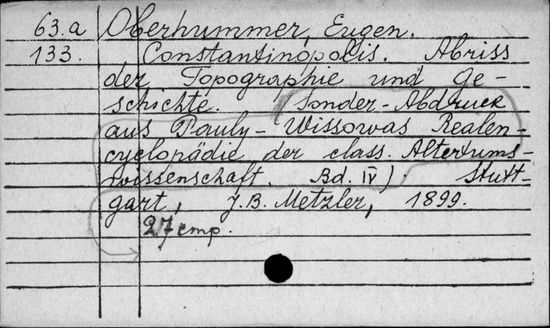 63.a Oberhummer, Eugen.
133. Constantinópolis. Abriss
der Topographie und Ge-
schichte. (Sonder-Abdruck
aus Pauly-Wissowas Realen-
cyclopädie der class. Altertums-
wissenschaft. Bd. IV) Stutt-
gart, J.B. Metzler, 1899.
27 cmp.